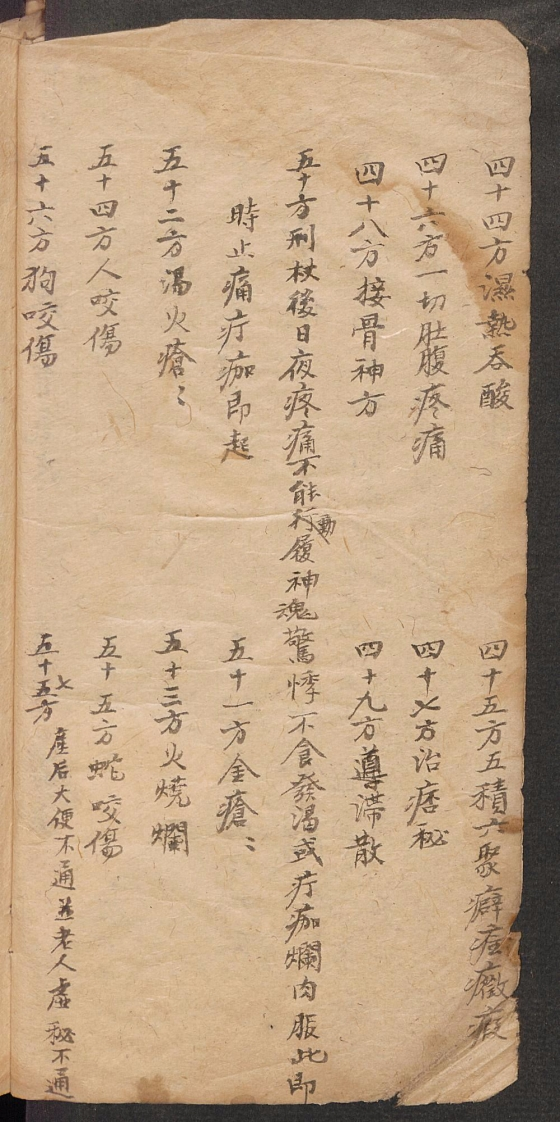 四十四方濕熱吞酸
四十五方五積六聚癖痃癥瘕
四十六方一切肚腹疼痛
四十七方治痞秘
四十八方接骨神方
四十九方導滯散
五十方刑杖後日夜疼痛不能行動履神魂驚悸不食發渴或疔痂爛肉服此即
時止痛疔痂即起
五十一方金瘡〻
五十二方湯火瘡〻
五十三方火燒爛
五十四方人咬傷
五十五方蛇咬傷
五十六方狗咬傷
五十五七方產后大便不通並老人虛秘不通